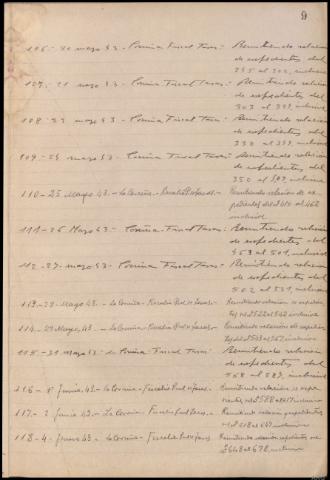 9
106 - 20 mayo 43 - Coruña Fiscal Tasas - Remitiendo relación
de expedientes del
295 al 302, inclusive
107 - 21 mayo 43 - Coruña Fiscal Tasas - Remitiendo relación
de expedientes del
303 al 337, inclusive
108 - 22 mayo 43 - Coruña Fiscal Tasas - Remitiendo relación
de expedientes del
338 al 349, inclusive
109 - 24 mayo 43 - Coruña Fiscal Tasas - Remitiendo relación
de expedientes del
350 al inclusive
110 - 25 Mayo 43 - La Coruña - Fiscalía - Remitiendo relación de ex-
pedientes del al 452
inclusive
111 - 26 Mayo 43 - Coruña Fiscal Tasas - Remitiendo relación
de expedientes del
453 al 501, inclusive
112 - 27 - mayo 43 - Coruña Fiscal Tasas - Remitiendo relación
de expedientes del
502 al 521, inclusive
113 - 28 - Mayo 43 - La Coruña - Fiscalía Prov. de Tasas - Remitiendo relación expedien-
tes del 522 al 542 inclusive
114 - 29 Mayo, 43 - La Coruña - Fiscalía Prov. de Tasas - Remitiendo relación de expedien-
tes del 543 al 567, inclusive
115 - 31 mayo 43 - Coruña Fiscal Tasas - Remitiendo relación
de expedientes del
568 al 587, inclusive
116 - 1º Junio, 43 - La Coruña - Fiscalía Prov. de Tasas - Remitiendo relación de expe-
dientes, del 588 al 617 inclusive
117 - 2 Junio 43 - La Coruña - Fiscalía prov. tasas - Remitiendo relación expedientes
del 618 al 647 inclusive
118 - 4 - Junio 43 - La Coruña - Fiscalía Prov. de Tasas - Remitiendo relación expedientes
648 al 678, inclusive